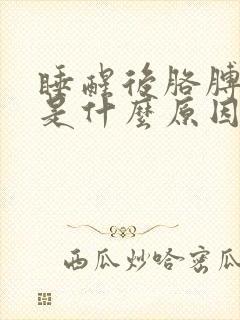 睡醒後胳膊
是什麼原因
西瓜炒哈密瓜